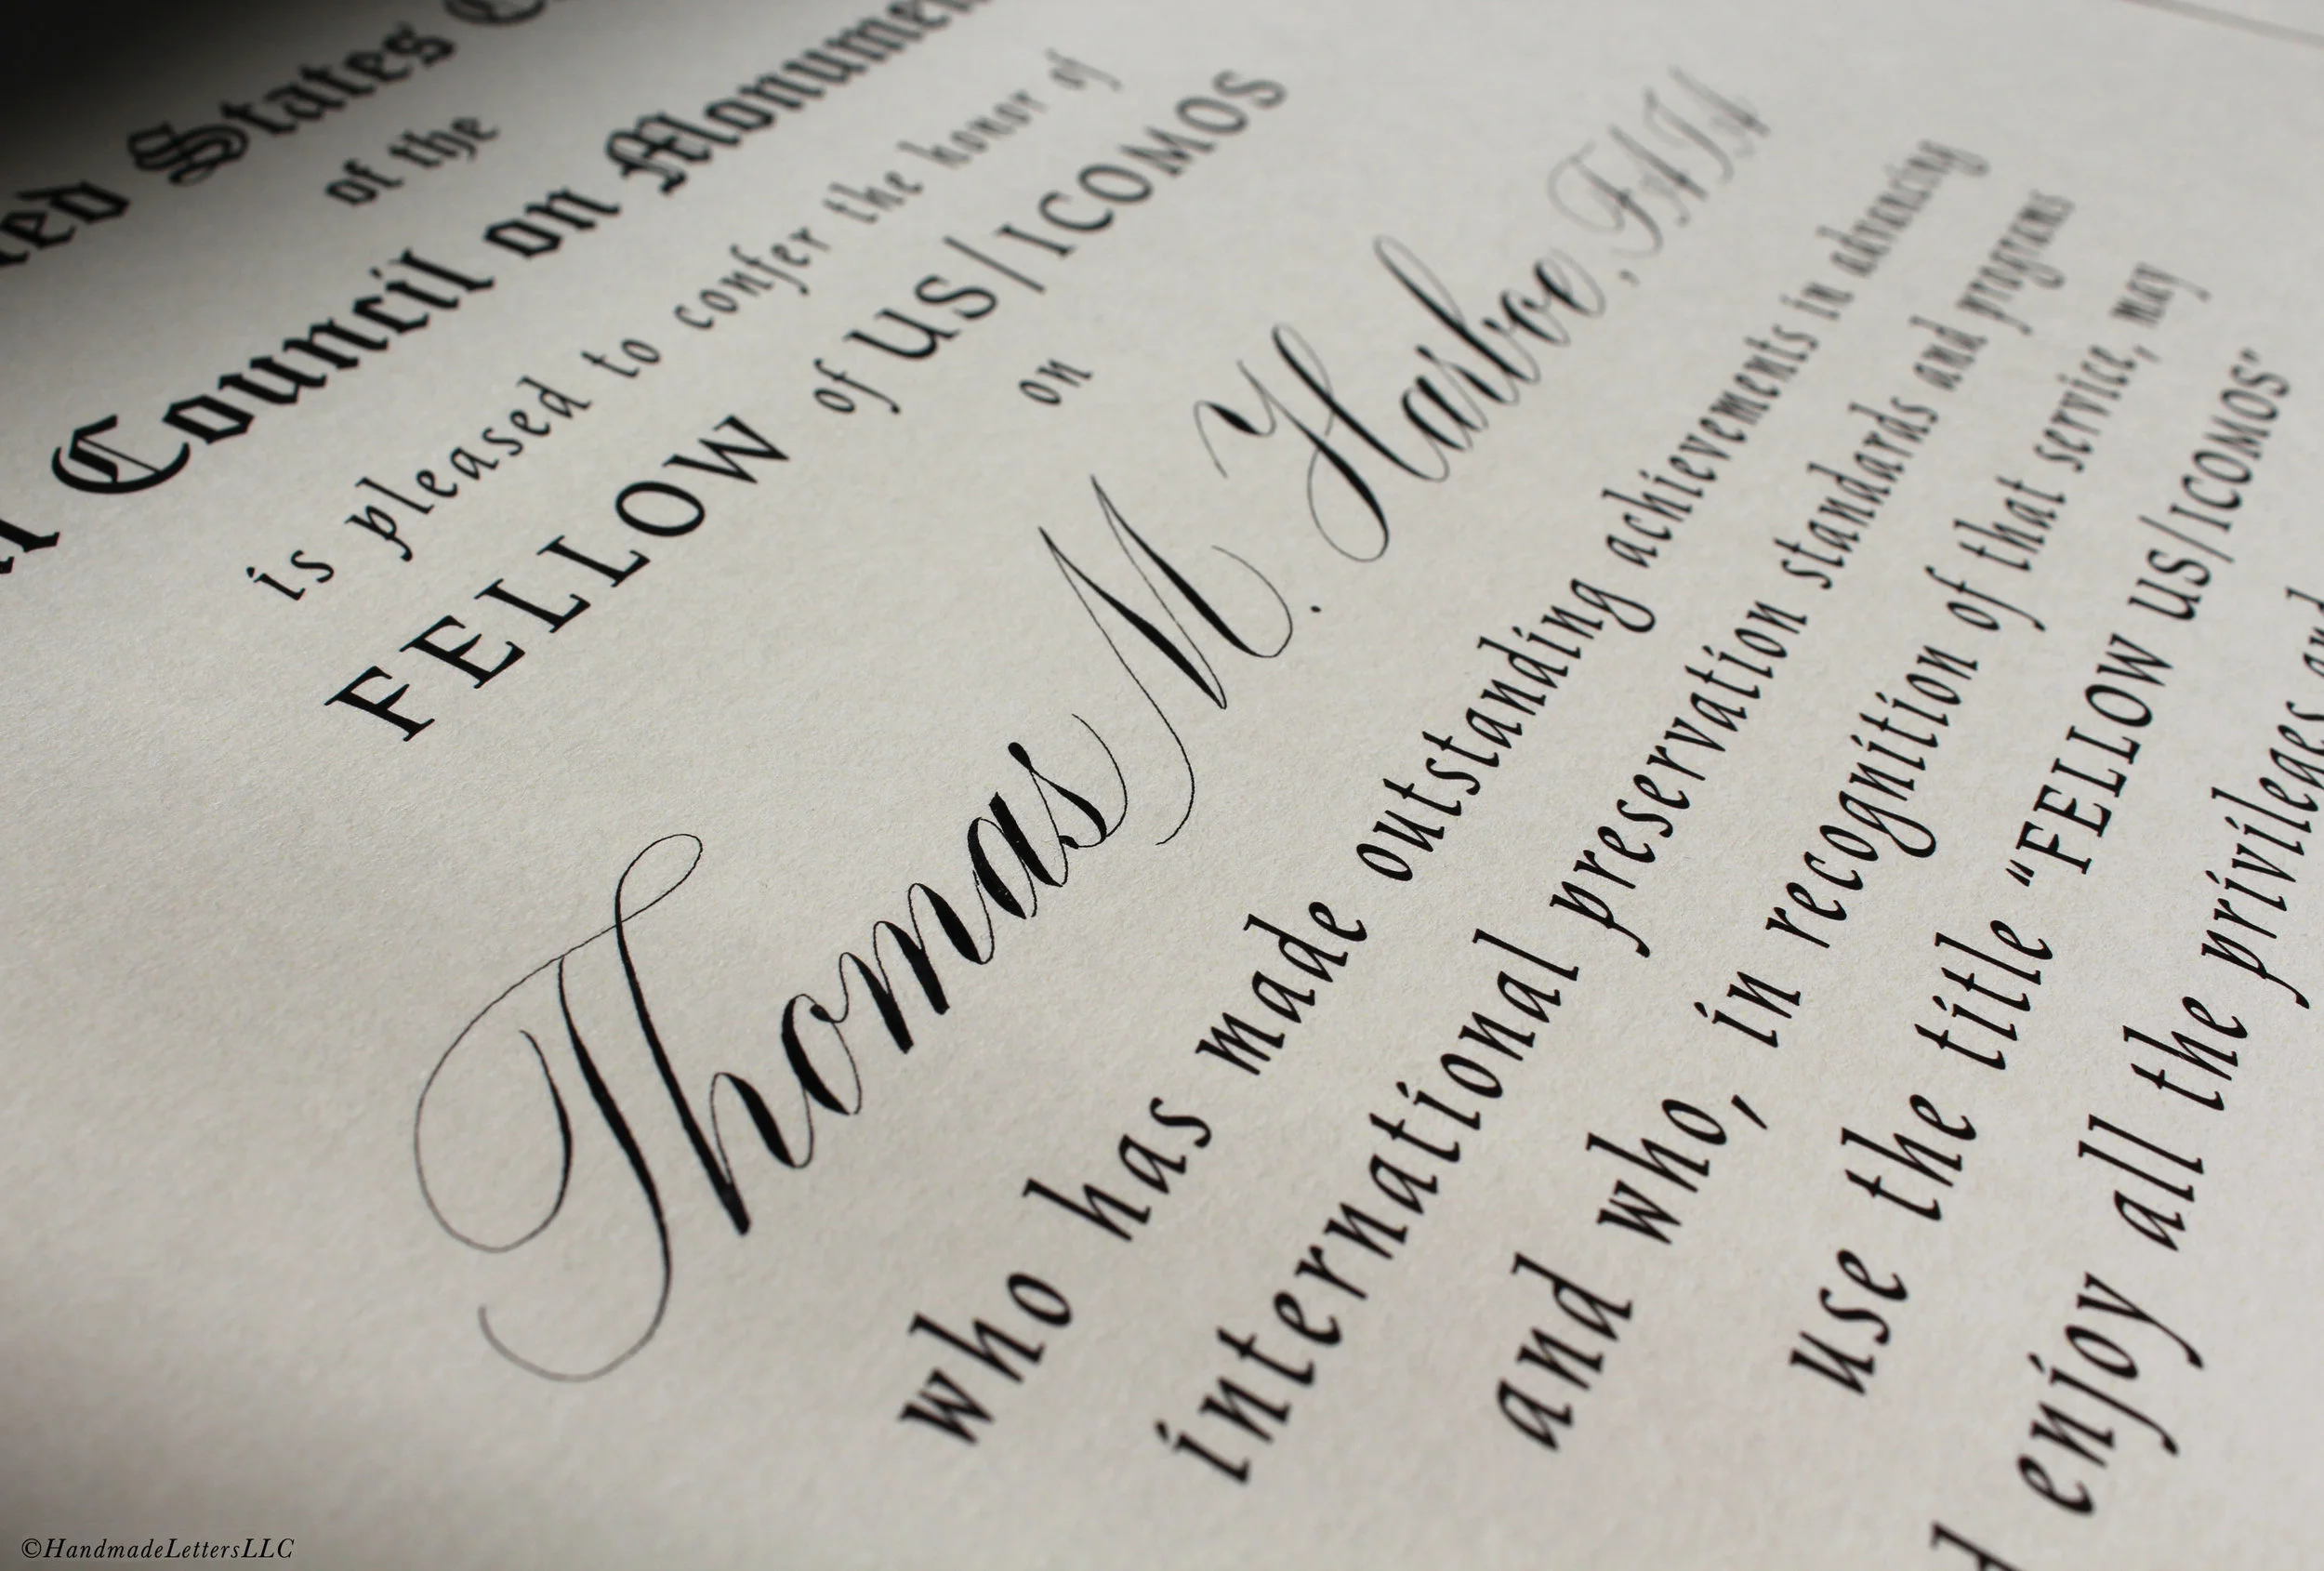 ted States
of the
l Council on Monumen
is pleased to confer the honor of
FELLOW of US/ICOMOS
on
Thomas M. Harboe, FAIA
who has made outstanding achievements in advancing
international preservation standards and programs
and who, in recognition of that service, may
use the title "FELLOW US/ICOMOS"
d enjoy all the privileges and
©HandmadeLettersLLC